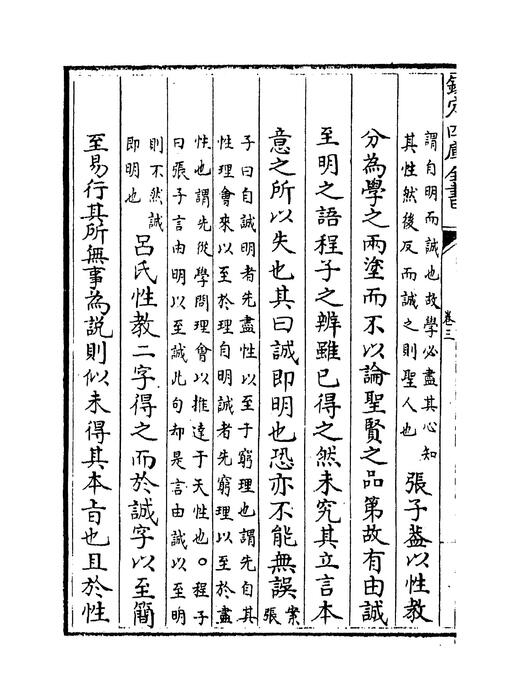 欽定四庫全書
卷三
謂自明而誠也故學必盡其心知
其性然後反而誠之則聖人也
張子蓋以性教
分為學之兩塗而不以論聖賢之品第故有由誠
至明之語程子之辨雖已得之然未究其立言本
意之所以失也其曰誠即明也恐亦不能無誤
案
張
子曰自誠明者先盡性以至于窮理也謂先自其
性理會來以至於理自明誠者先窮理以至於盡
性也謂先從學問理會以推達于天性也○程子
曰張子言由明以至誠此句却是言由誠以至明
則不然誠
即明也
呂氏性教二字得之而於誠字以至簡
至易行其所無事為說則似未得其本旨也且於性